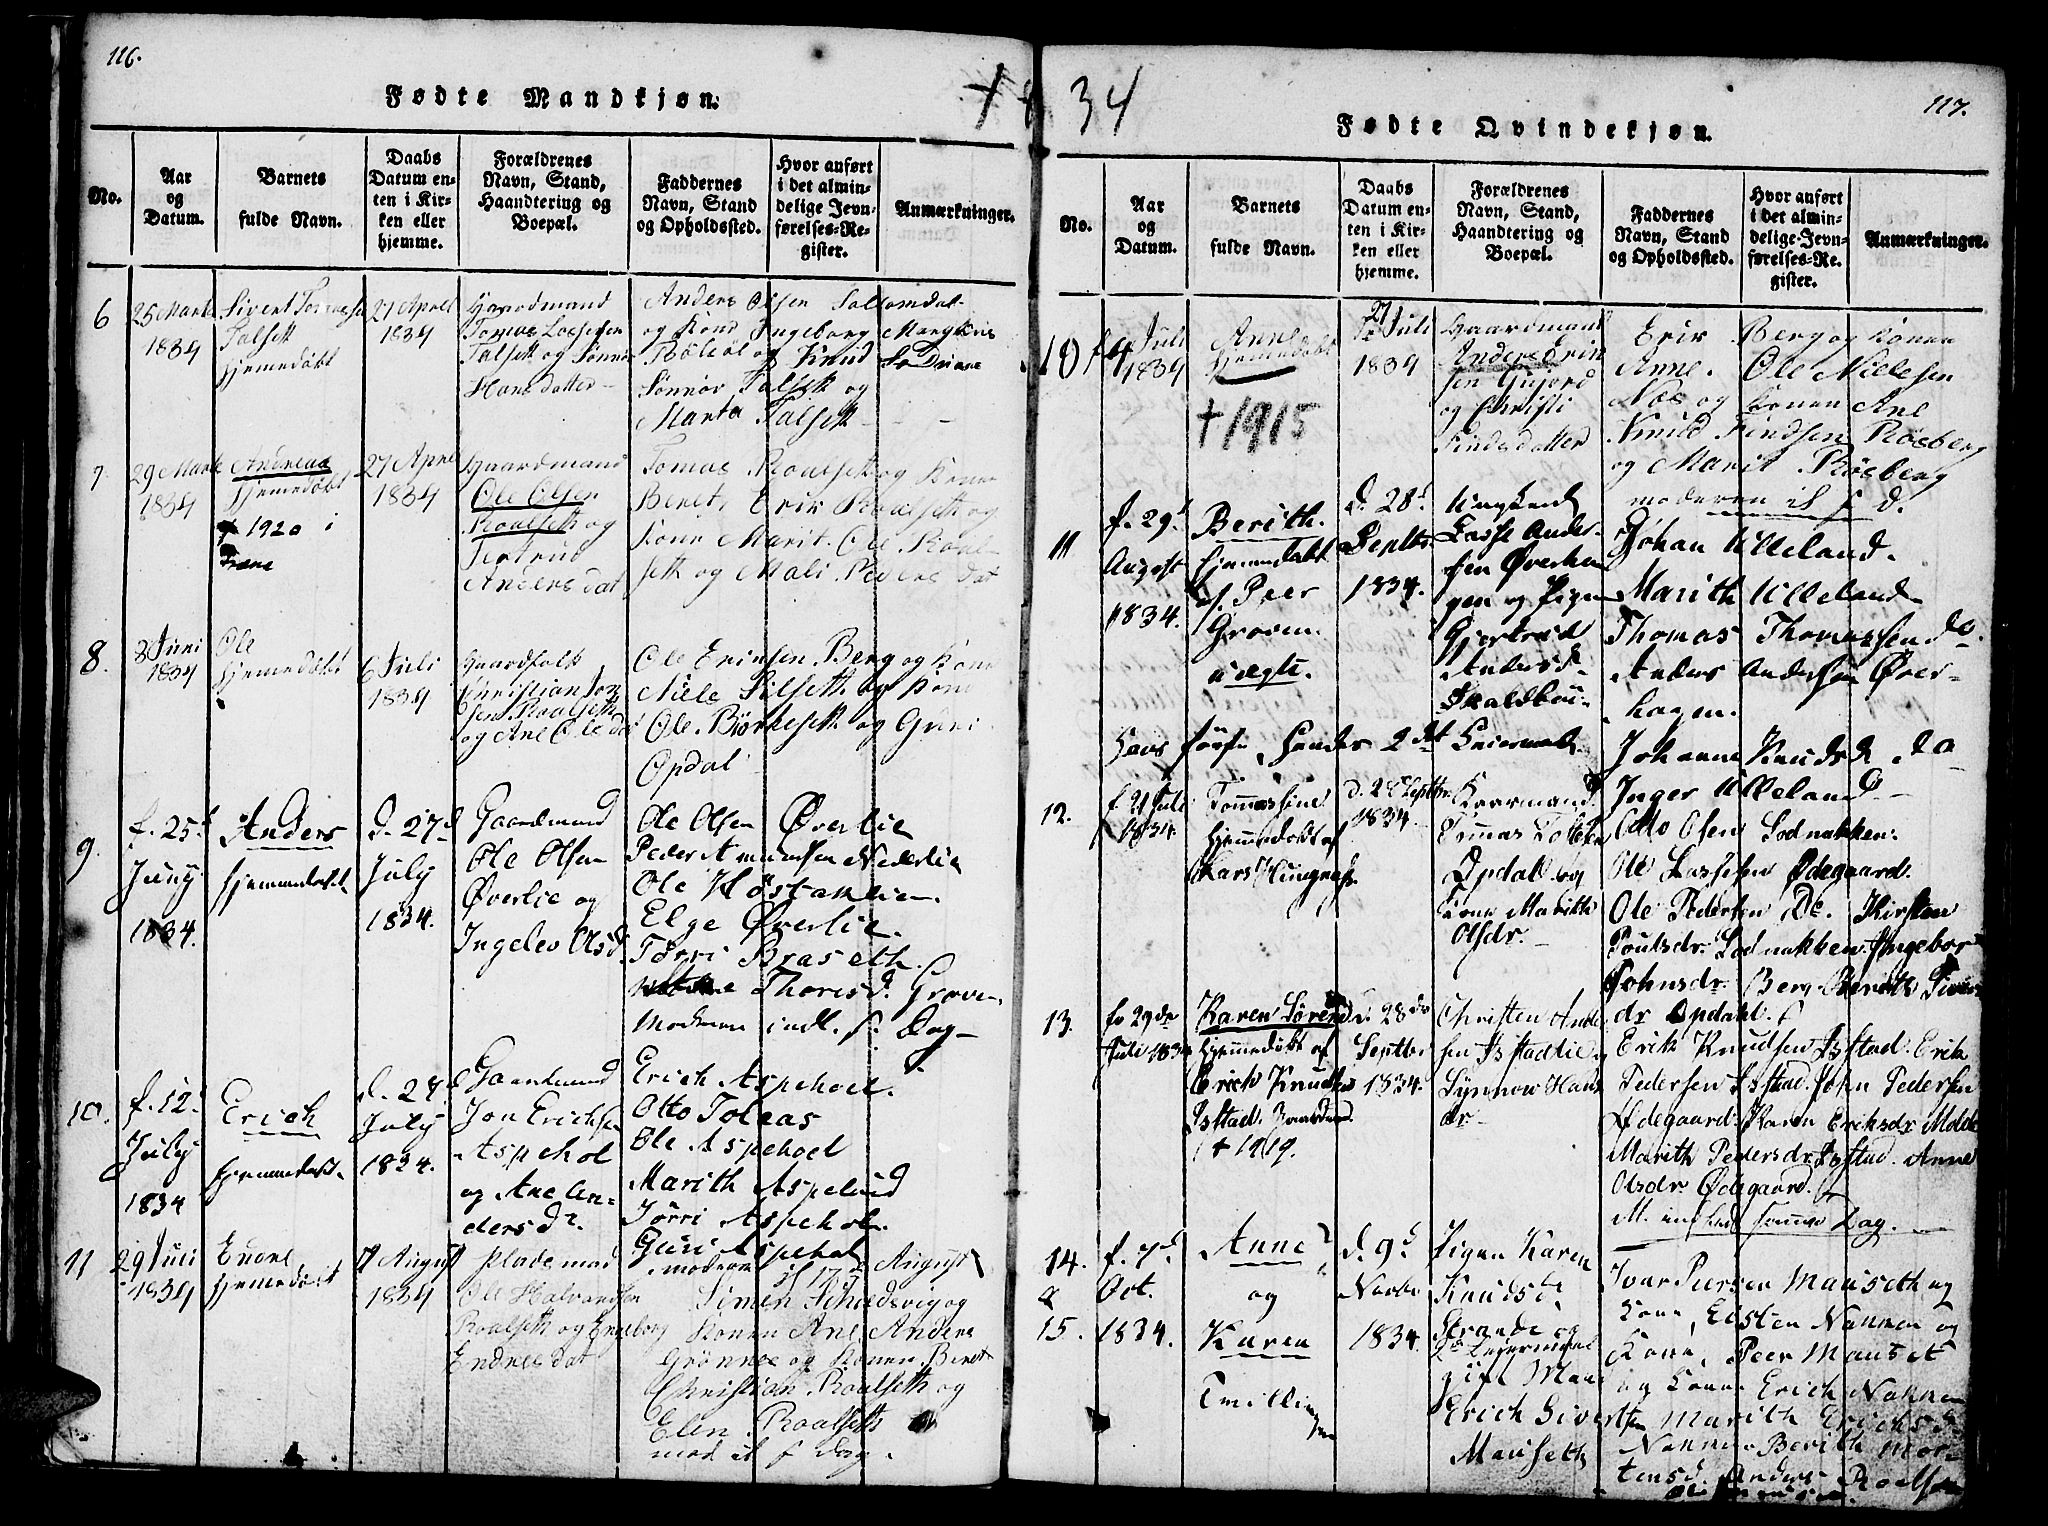 116.
Fødte Mandkjøn.
No.
Aar og Datum.
Barnets fulde Navn.
Daabs Datum enten i Kirken eller hjemme.
Forældrenes Navn, Stand, Haandtering og Boepæl.
Faddernes Navn, Stand og Opholdssted.
Hvor anført i det almindelige Jevnførelses-Register.
Anmærkninger.
6
25 Marts
1834
Sivert
Talsett
hjemedøbt
27 April
1834
Gaardmand
Tomas
Talsett og Sønnev
Hans datter
Anders Olsen
og Kone Ingeborg
og Knud
Sønnøv Talsett og
Marta Talsett
7.
29 Marts
1834
Andreas
hjemedøbt
1920 i
27 April
1834
Gaardmand
Ole Olsen
Roalsett og
Anders dat
Tomas Roalsett og Kone
Beret, Erik Roalsett og
Kone Marit. Ole Roal-
sett og Mali Peders dat
8.
8 Juni
1834
Ole
hjemedøbt
6 Juli
1834
Gaardfolk
Christian
Roalsett
og Ane Ole dat
Ole Erinsen Berg og Kone
Niels Silsett og Kone
Ole Børkesett og Guri
Opdal
9.
f. 25d
Juny
1834.
Anders
hjemmedøbt
d. 27d
July
1834.
Gaardmand
Ole Olsen
Øverlie og
Ingelev Olsd
Ole Olsen Øverlie
Peder Amundsen Nederlie
Ole Høstaklien.
Elge Øverlie.
Tørri Braseth.
Thoresd. Groven
Moderen indl. s. Dag
10.
f. 12.
July
1834
Erich
hjemmedøbt
d. 27.
July
1834.
Gaardmand
Jon Erichsen
Aspehol
og Ane An-
dersdr.
Erich Aspehoel.
Otto Toleas
Ole Aspehoel
Marith Aspelund
Tørri Aspehol.
Guri Aspehol
moderen il 17d August
11
29 Juli
1834
hjemedøbt
17 August
1834
Pladsmand
Ole Halvardsen
Roalsett og Engeborg
Endres dat
Simen Schaldsvig og
Konen Ane Anders
Grønnes og Konen Beret
Christian Roalsett og
Elen Roalsett
mod il s Dag.
1834
117.
Fødte Qvindekjøn.
No.
Aar og Datum.
Barnets fulde Navn.
Daabs Datum enten i Kirken eller hjemme.
Forældrenes Navn, Stand, Haandtering og Boepæl.
Faddernes Navn, Stand og Opholdssted.
Hvor anført i det almindelige Jevnførelses-Register.
Anmærkninger.
10
Juli
1834
Anne
hjemedøbt
† 1915
27 Juli
1834
Gaardmand
Anders Erin
sen Gujord
og Christi
Findsdatter
Erik Berg og Konen
Anne. Ole Nielsen
Næs og Konen Ane
Knud Findsen Røsberg
og Marit Røsberg
moderen il s D.
11
f. 29d
August
1834.
Berith.
hjemmedøbt
af Peer
Groven.
uægte.
d. 28d
Septbr
1834.
Ungkarl
Lasse Ander-
sen Øverha
gen og Pigen
Gjertrud
Andersd
Skaldbøi
Johan Ulleland.
Marith Ulleland
Thomas Thomassen do.
Anders Andersen Øver-
hagen.
Hans første, Hendes 2det Leiermaal.
Johanne Knudsd. do
Inger Ulleland
12.
f 21 Juli
1834.
Tomassine
hjemmedøbt af
Lars Hungnes.
d. 28 Septbr
1834.
Gaardmand
Tomas
Opdal og
Kone Marith
Olsdr.
Otto Olsen Sodnakken.
Ole Lassesen Ødegaard.
Ole Pedersen Do. Kirsten
Poulsdr Sodnakken. Ingebor
Johnsdr Berg. Berith Siver
dr Opdahl.
13.
f. 29de
Juli 1834
Karen Sørene
hjemmedøbt af
Erich Knudsen
Istad.
† 1919.
d. 28de
Septbr
1834.
Christen Ande
sen Istadlie og
Synnøv Hans
dr.
Erik Knudsen Istad. Erik
Pedersen Istad. John Pedersen
Ødegaard. Karen Eriksdr Molde
Marith Pedersdr Istad. Anne
Olsdr Ødegaard.
M. samme Dag.
14.
&
15.
f. 7d
Oct.
1834.
Anne
og
Karen
Tvillinger
d. 9d
Novbr
1834.
Pigen Karen
Knudsd.
Strande og
gift Mand
Erich Sivertsen
Mauseth
Ivar Peersen Mauseth og
Kone, Eisten Nakken og
Kone, Peer Mauset
og Kone Erich Nakken
Marith Erichsd.
Nakken Berith Mor-
tensd. Anders Roelsen